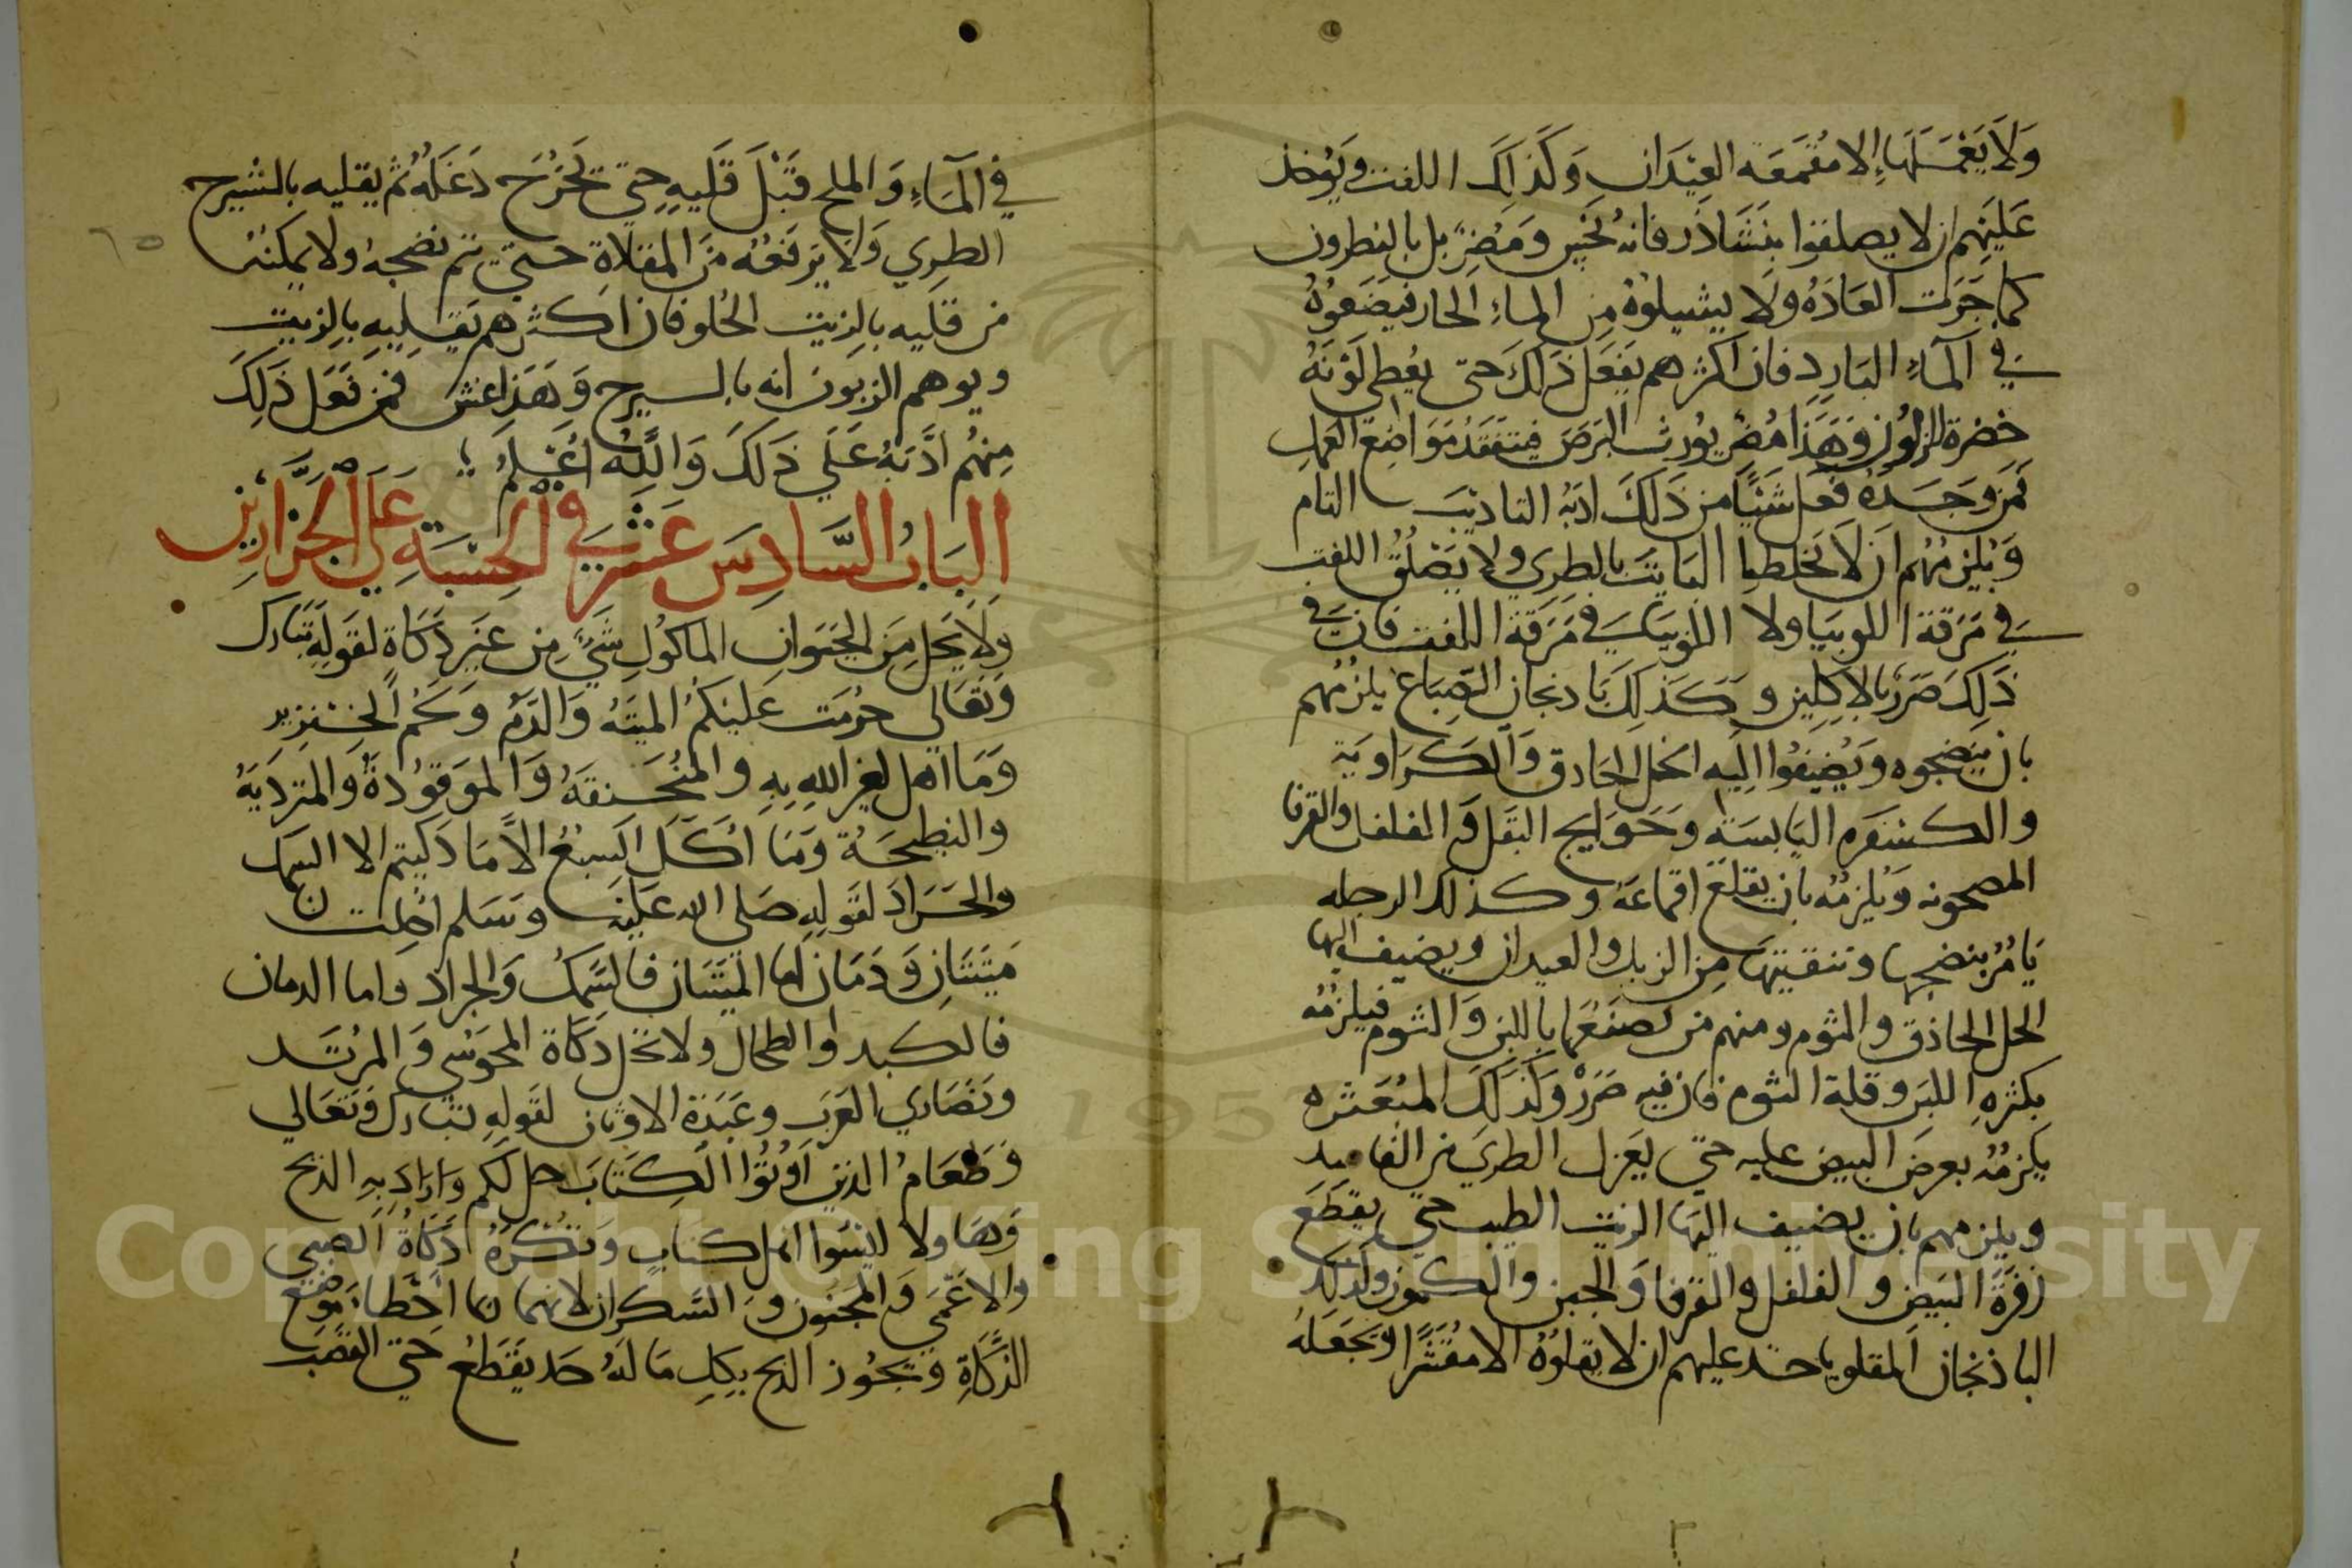 وَلَا يَعْمَلَهَا إلا مُقَمَعَه العِيْدَان وَكَذَلِكَ اللفت وَيُوخذ
عَلَيْهِم ان لا يصلقوا بنَشَاذر فانه نجس وَمُضِرّ بل بالنطرون
كما جَرَت العَادَهُ ولا يشيلوهُ مِن الماءِ الحار فيَضَعُوهُ
في الماءِ البَارِدِ فان اكثرهم يَفعَل ذَلِكَ حتى يُعطى لَوْنهُ
خضرة الزلون وَهَذا مُضِر يورث البَرَص فيتفَقَدُ مَوَاضِعَ العَمل
فَمَن وَجَدَهُ فعَل شَيْئًا من ذَلكَ ادَبَهُ التاديْبَ التام
وَيُلزِمُهُم ان لا يخلطوا البَايت بالطرِي ولا يَصْلقُ اللفت
في مَرَقة اللوبيَا ولا اللوبيَا في مَرَقة اللفت فان في
ذَلِكَ ضَرَر بالاكلين وكَذلِكَ بَادنجان الصِبَاغ يلزمُهم
بان ينضجوه وَيُضِيفُوا اِليه الخل الحَادق وَالكَرَاويَة
والكسْفَره اليَابسَة وَحَوَايج البَقل وَالفلفل والقرفا
المصحونه وَيُلزمُه بان يقلعَ اقماعَهُ وكذلك الرجله
يَامُرُ بنضجها وتنقيتهَا مِن الزبل والعيدان ويضيف اليها
الخل الحاذق والثوم ومنهم من يَصنَعُهَا باللبن وَالثوم فيلزمُه
بكثرهِ اللبَن وقلة الثوم فان فيه ضَرَرْ وَكَذَلكَ المبُعَثره
يلزمُهُ بعرضَ البيض عليه حتي يَعزل الطري من الفاسد
ويلزمهم بان يضيف اليَها الزيت الطيب حتي يقطَعَ
زفرَةَ البَيض والفلفل والقرفا وَالجبن والكمون وكذلك
الباذنجان المقلو ياخد عليهم ان لا يقلوُهُ الا مقَشَرًا ويَجعَلهُ
في المَآءِ وَالملح قَبْلَ قَليِهِ حِتي تخرُجَ دَغَلهُ ثم يقليه بالشيرج
الطرِي وَلَا يَرفعُهُ مَن المقلَاةِ حتي يتم نضجهُ ولا يمكنُهُ
من قليه بالزيت الحُلو فان اكثرهم يَقلِيهِ بالزيت
ويوهم الزبون انه بالسيرج وَهَذا غش فمن فَعَل ذَلِكَ
مِنهُم ادَّبَهُ عَلَي ذَلكَ وَاللهُ اعْلَمُ
البَابُ السَّادِسَ عَشَر في الحِسْبَةِ عَلَى الجَزَّارِيْن
وَلَا يَحِل مِنَ الحَيَوانِ المَاكُولِ شَيْءٍ مِن غَيَر ذكَاة لقَولِهِ تَبَارَك
وَتَعَالَى حُرمَت عَليْكُمُ الميتَهُ وَالدَّم وَلَحْم الخِنزير
وَمَا اهل لغير اللهِ بهِ والمنُخَنقَهُ وَالمَوَقوُذةُ والمترديَهُ
والنطيحَهُ وَمَا اكَلَ السَبعُ الا مَا ذكيتم الا السمك
والجَرَاد لقَولِهِ صَلى الله عَليْه وسَلم احلت لنا
مَيْتَتَانِ وَدَمَان اما الميْتتَان فالسَّمكُ وَالجراد واما الدمان
فالكبد والطحال ولا تحل ذكَاة المجوَسْي وَالمرُتَد
ونَصَارى العَرَب وعَبَدَة الاوثان لقولهِ تبَارك وتعَالي
وَطعَامُ الذين اُوْتُوا الكِتَابَ حل لكم وَارَادَ بِهِ الذبح
وَهَا ولا ليسَوا اهل كتَاب وَتكْرَهُ ذَكَاةُ الصبى
والاعْمَي وَالمَجنون وَالسَّكران لانهما ربما اخْطا مَوضع
الذَّكَاةِ ويَجُوز الذبح بكلِ مَا لهُ حَد يقَطعُ حَتي القصَب